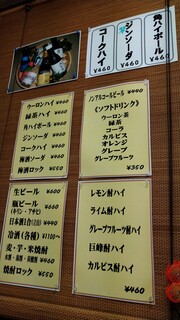 角ハイボール
¥460
ジンソーダ
¥460
コークハイ
¥460
ウーロンハイ ¥460
緑茶ハイ ¥460
角ハイボール ¥460
ジンソーダ ¥460
コークハイ ¥460
梅酒ソーダ ¥460
梅酒ロック ¥550
ノンアルコールビール ¥440
《ソフトドリンク》
ウーロン茶
緑茶
コーラ
カルピス
オレンジ
グレープ
グレープフルーツ
¥350
生ビール ¥600
瓶ビール ¥660
(キリン・アサヒ)
日本酒1合 ¥440
冷酒(各種) ¥1100〜
麦・芋・米焼酎
水割・湯割・炭酸割 ¥460
焼酎ロック ¥550
レモン酎ハイ
ライム酎ハイ
グレープフルーツ酎ハイ
巨峰酎ハイ
カルピス酎ハイ
¥460